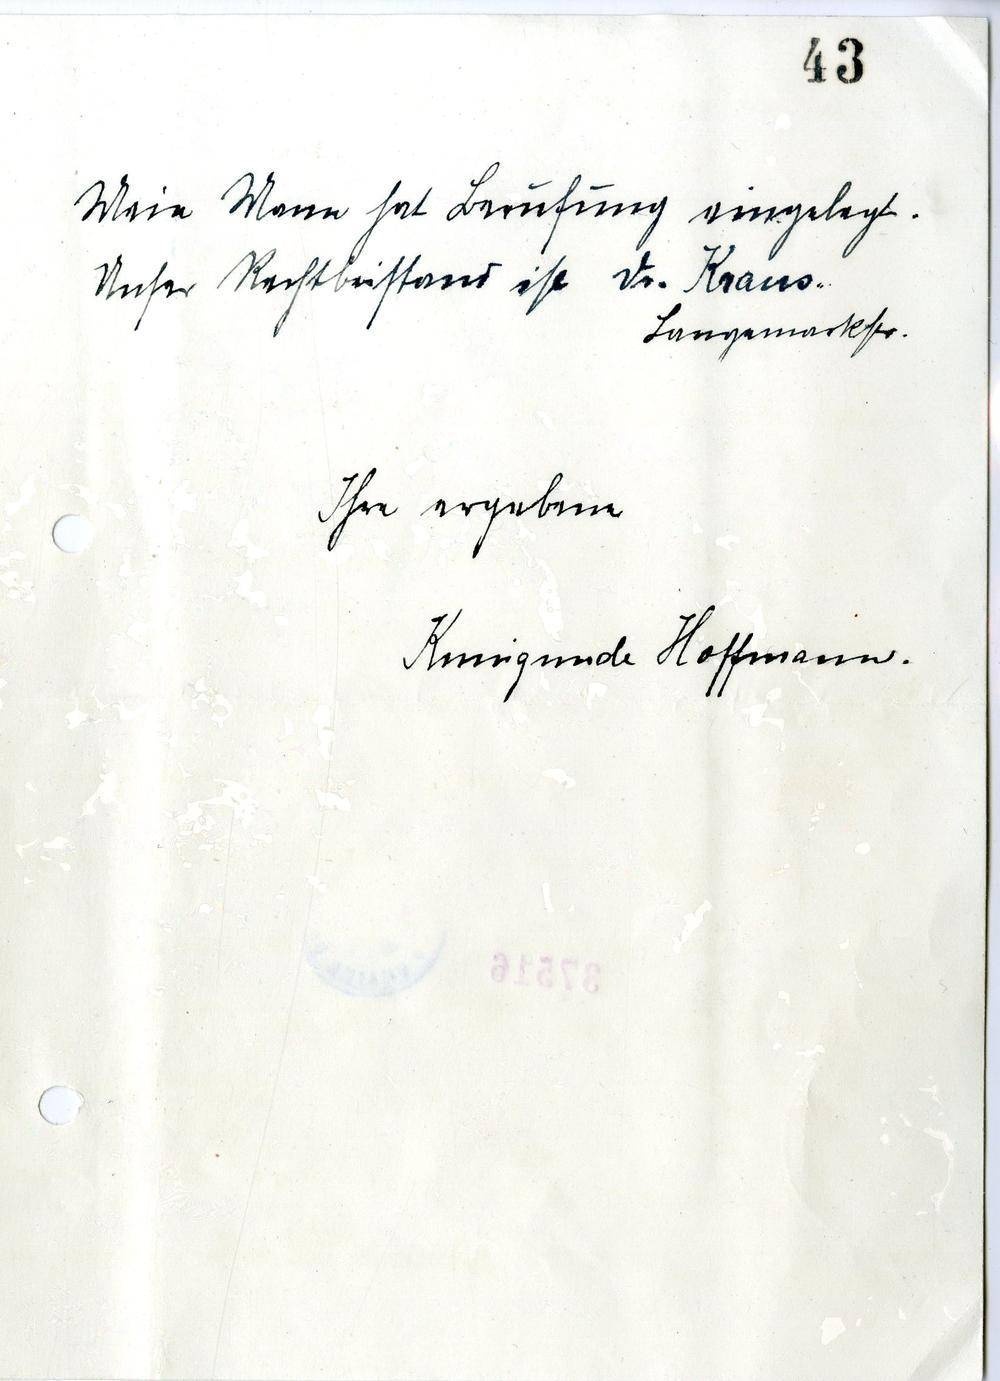 43
Mein Mann hat Berufung eingelegt.
Unser Rechtbeistand ist Dr. Kraus.
Langemarkstr.
Ihre ergebene
Kunigunde Hoffmann.
37516